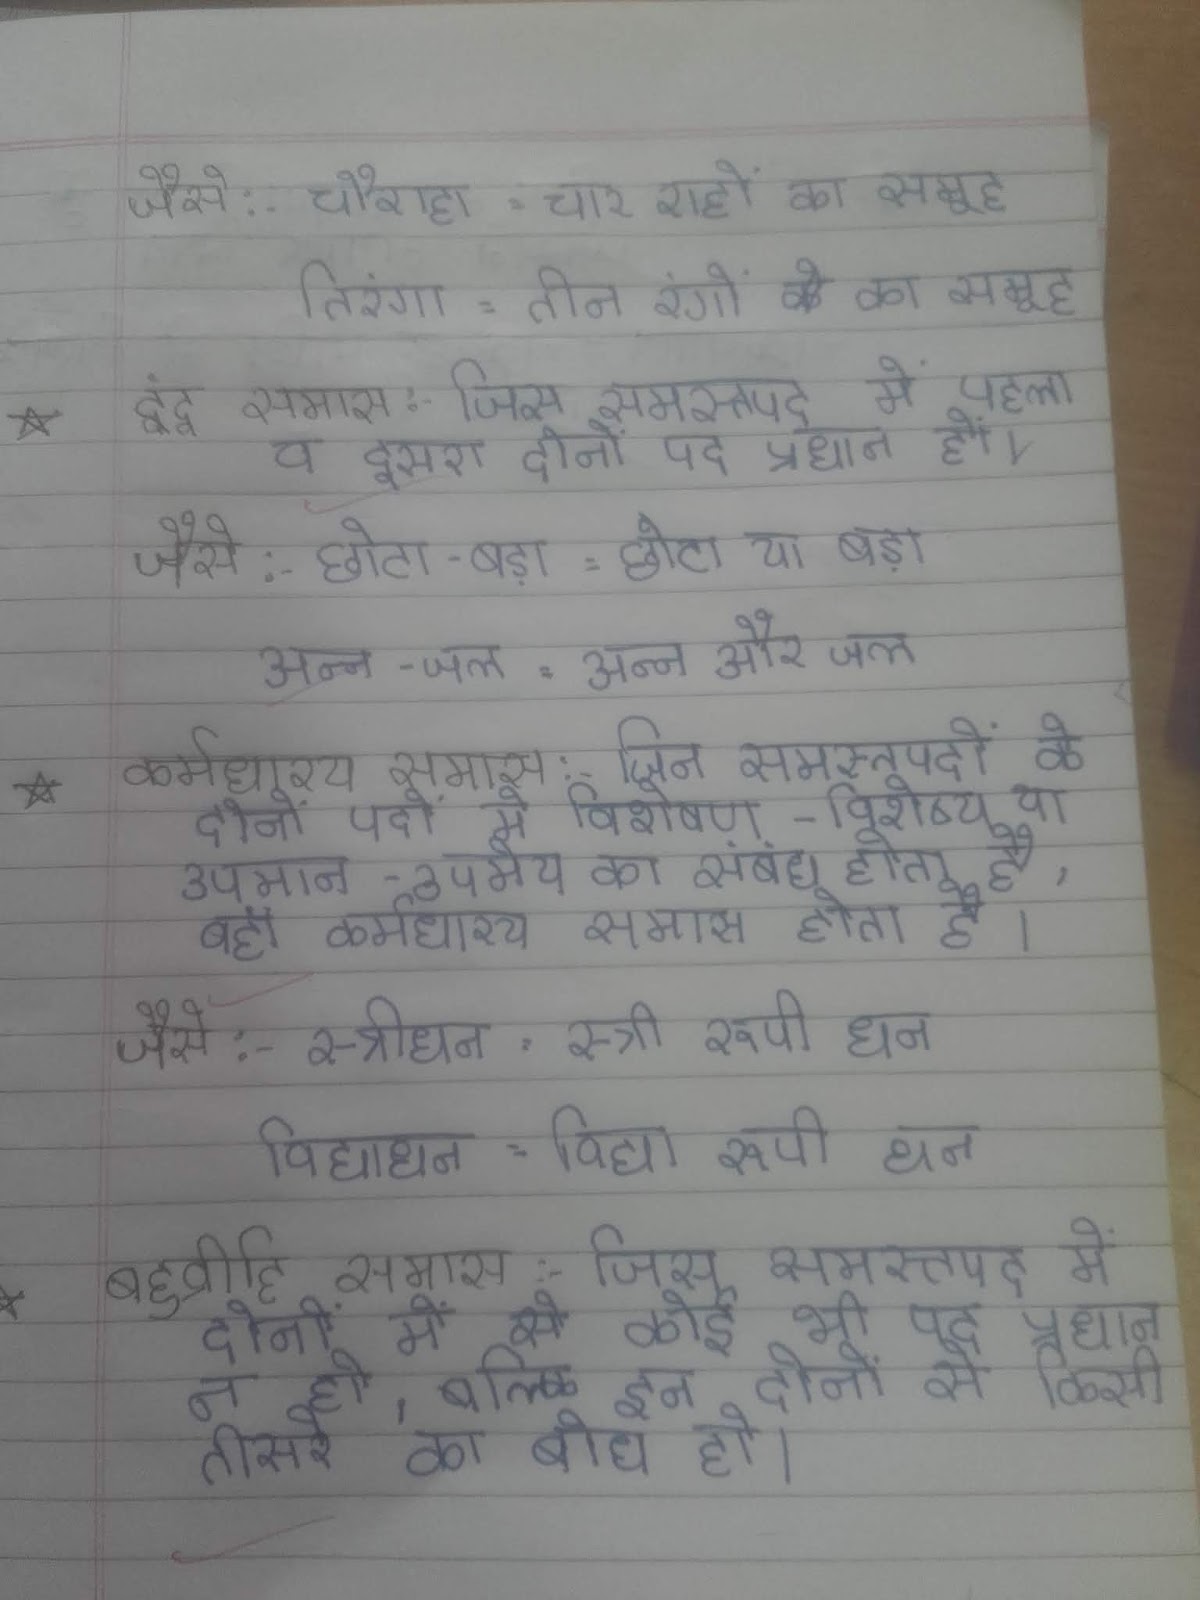 जैसे:- चौराहा = चार राहों का समूह
तिरंगा = तीन रंगों का समूह
द्वंद्व समास:- जिस समस्तपद में पहला
व दूसरा दोनों पद प्रधान हों।
जैसे:- छोटा-बड़ा = छोटा या बड़ा
अन्न-जल = अन्न और जल
कर्मधारय समास:- जिन समस्तपदों के
दोनों पदों में विशेषण-विशेष्य या
उपमान-उपमेय का संबंध होता है,
वहाँ कर्मधारय समास होता है।
जैसे:- स्त्रीधन = स्त्री रूपी धन
विद्याधन = विद्या रूपी धन
बहुव्रीहि समास:- जिस समस्तपद में
दोनों में से कोई भी पद प्रधान
न हो, बल्कि इन दोनों से किसी
तीसरे का बोध हो।